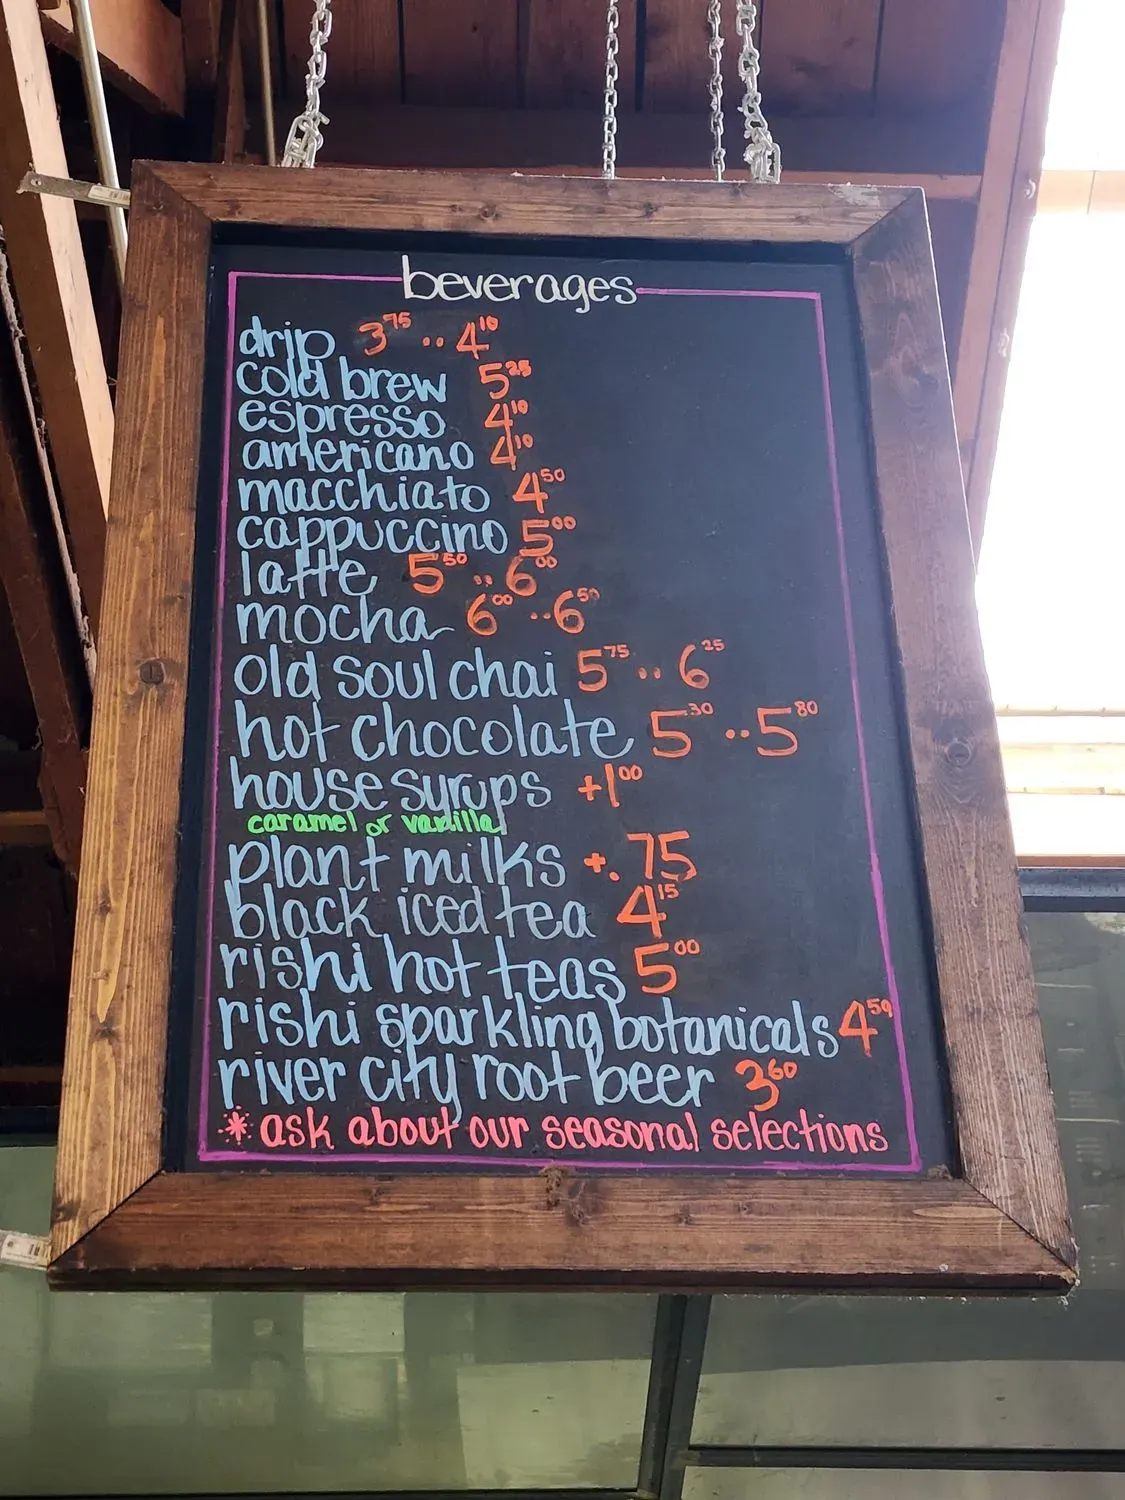 beverages
drip 3.75 .. 4.10
cold brew 5.25
espresso 4.10
americano 4.10
macchiato 4.50
cappuccino 5.00
latte 5.50 .. 6.00
mocha 6.00 .. 6.50
old soul chai 5.75 .. 6.25
hot chocolate 5.30 .. 5.80
house syrups +1.00
caramel or vanilla
plant milks +.75
black iced tea 4.15
rishi hot teas 5.00
rishi sparkling botanicals 4.50
river city root beer 3.60
* ask about our seasonal selections